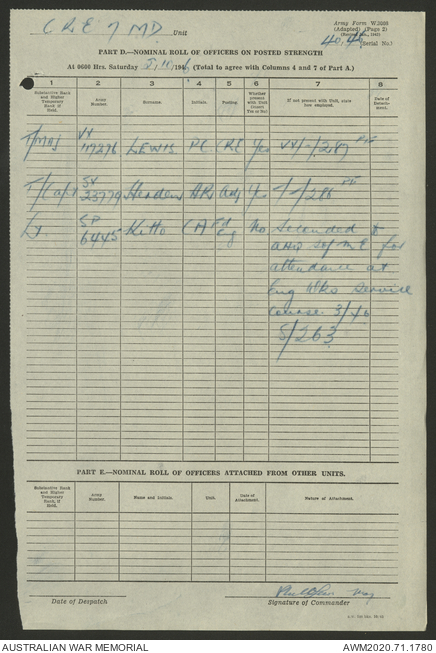 C R E 7 MD Unit
Army Form W.3008
(Adapted) (Page 2)
40/46 (Serial No.)
PART D.—NOMINAL ROLL OF OFFICERS ON POSTED STRENGTH
At 0600 Hrs. Saturday 5/10/1946 (Total to agree with Columns 4 and 7 of Part A.)
1 2 3 4 5 6 7 8
Substantive Rank and Higher Temporary Rank if Held.
Army Number.
Surname.
Initials.
Posting.
Whether present with Unit (Insert Yes or No)
If not present with Unit, state how employed.
Date of Detachment.
T/Maj VX 117276 LEWIS CRE Yes
T/Capt SX 23779 AR Adj Yes
Lt SP 6445 Kitto CA Fd Eng No Seconded to
AHQ for
attendance at
Eng Wks Service
Course. 3/46
S/263
PART E.—NOMINAL ROLL OF OFFICERS ATTACHED FROM OTHER UNITS.
Substantive Rank and Higher Temporary Rank, if Held.
Army Number.
Name and Initials.
Unit.
Date of Attachment.
Nature of Attachment.
Maj
Date of Despatch
Signature of Commander
AUSTRALIAN WAR MEMORIAL
AWM2020.71.1780